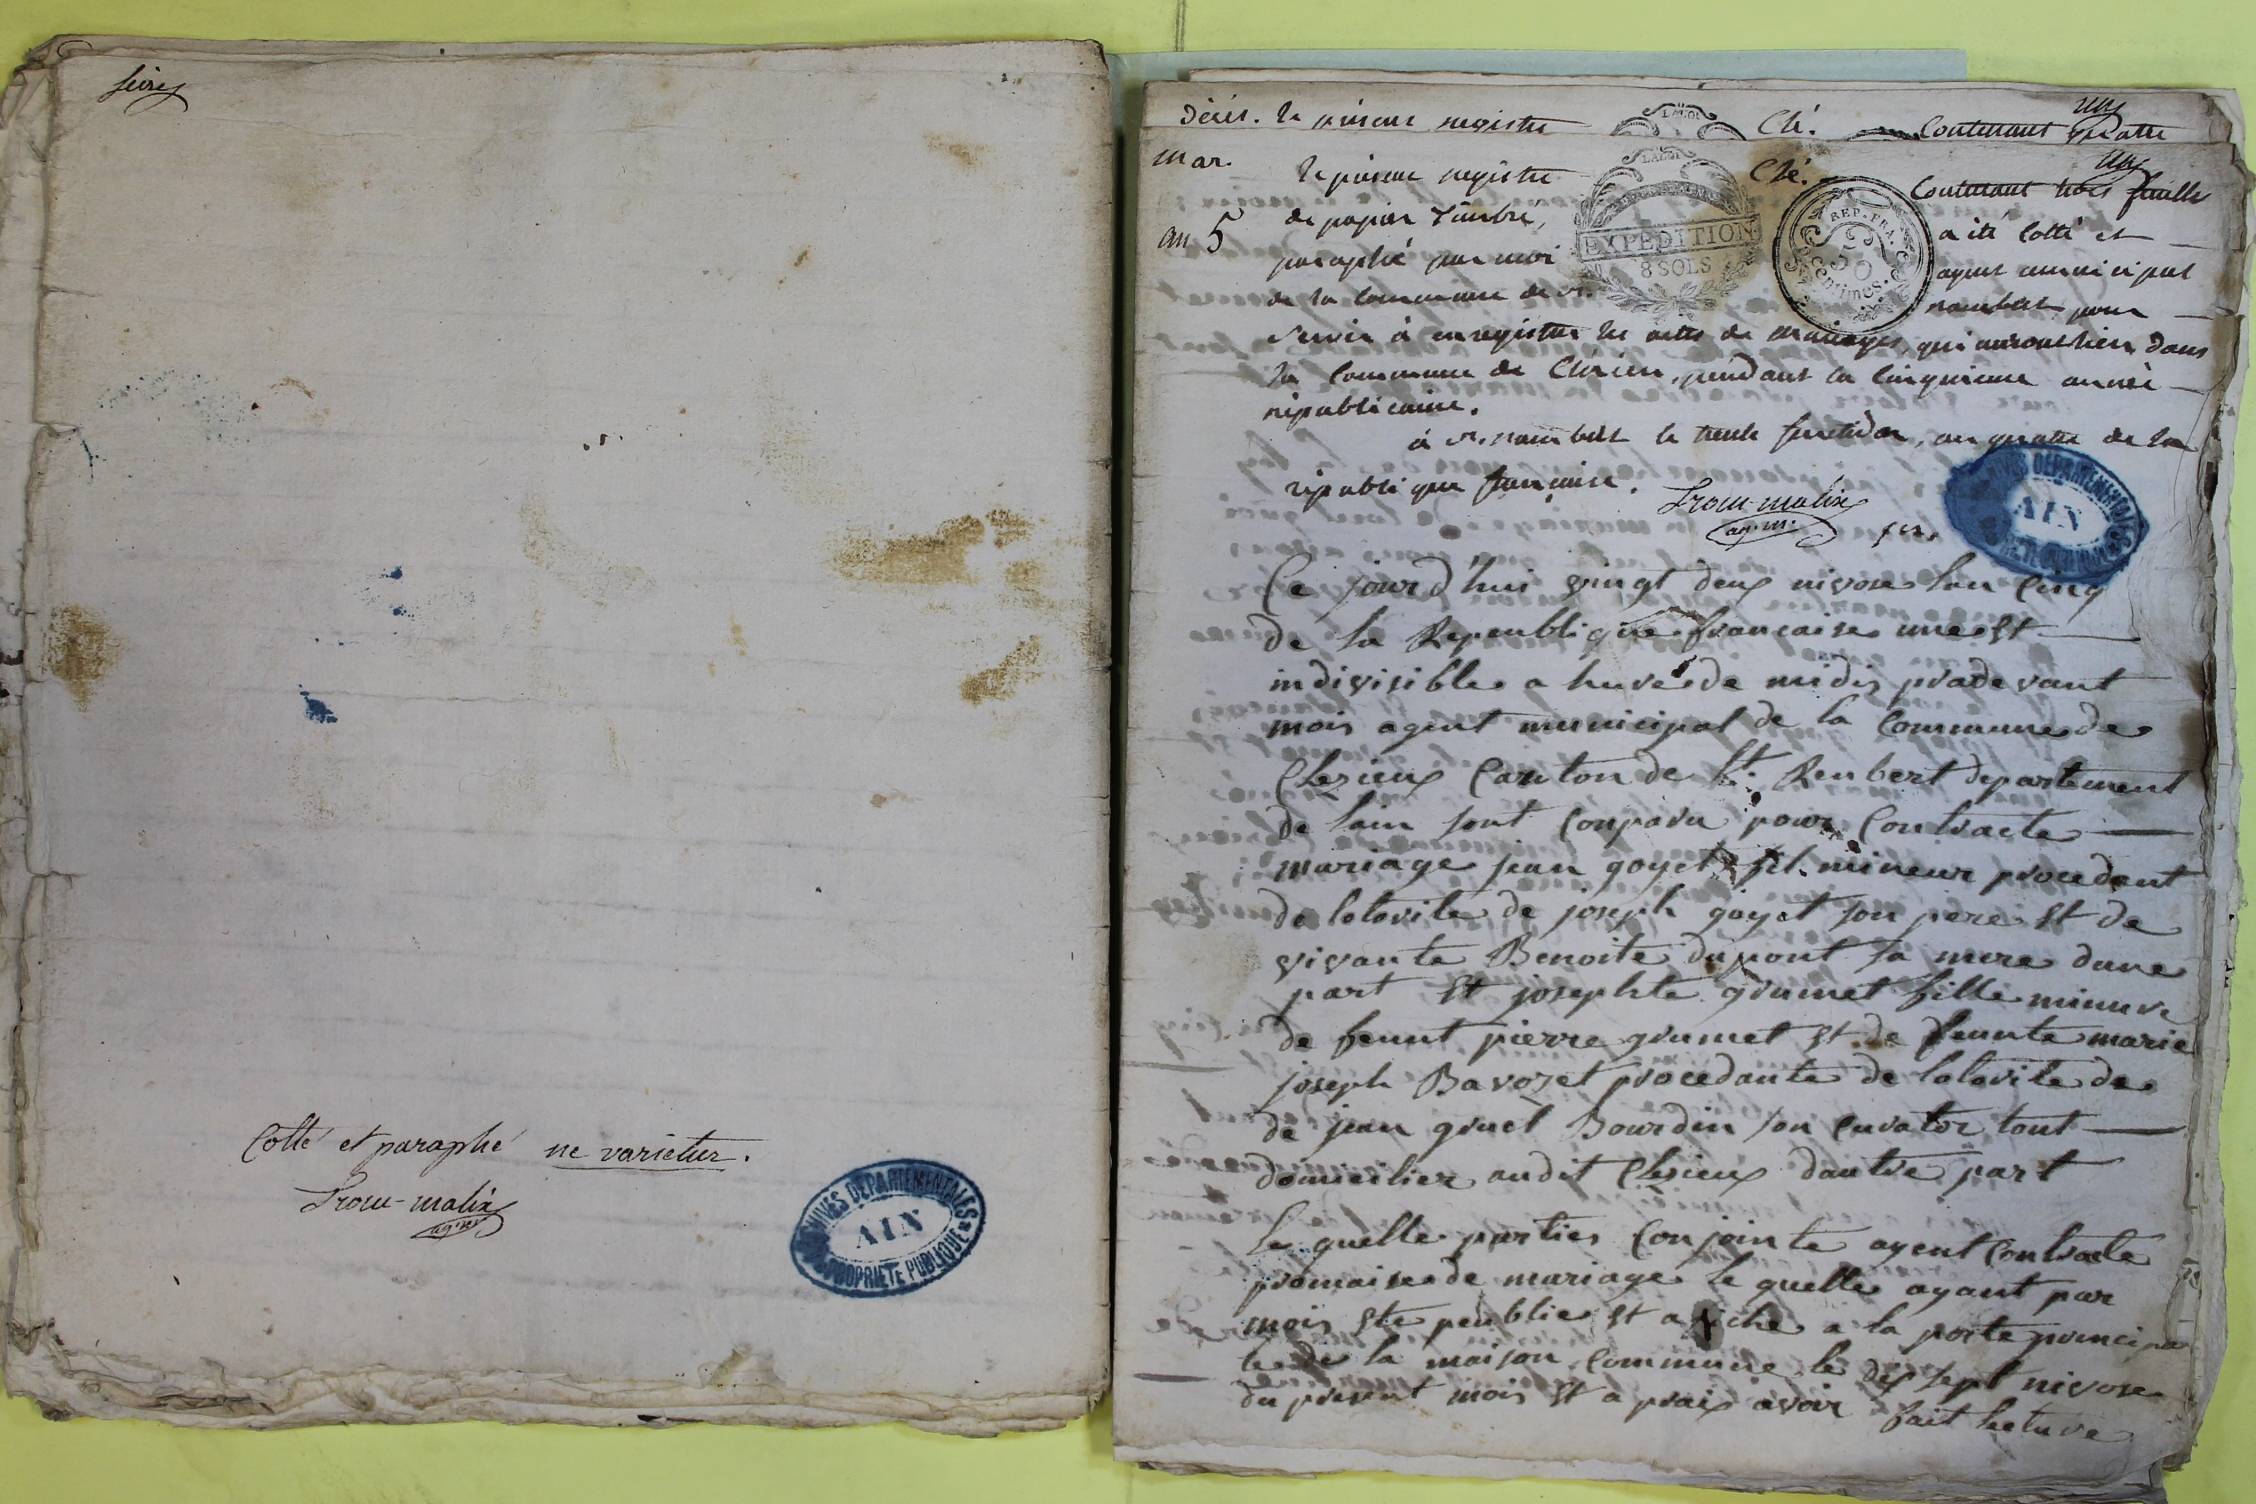 seize
Cotté et paraphé ne varietur.
ag. m.
ARCHIVES DEPARTEMENTALES
AIN
PROPRIETE PUBLIQUE
décès. le présent registre
Clé.
un
contenant quatre
mar.
le présent registre
LA LOI
Clé.
un
contenant trois feuilles
an 5
de papier timbré,
EXPEDITION
8 SOLS
REP. FRA.
50
centimes.
a été cotté et
paraphé par moi
agent municipal
de la commune de st.
rambert pour
servir à enregistrer les actes de mariages, qui auront lieu dans
la commune de Clésieu, pendant la cinquieme année
républicaine.
à st. rambert le trente fructidor, an quatre de la
république françoise.
ag. m.
ARCHIVES DEPARTEMENTALES
AIN
Ce jourd'hui vingt deux nivose lan Cinq
de la Repeublique francaise une st
indivisible a hure de midis pradevant
mois agent municipal de la Commune de
Clesieux Canton de St. Renbert departement
de lain sont Conparu pour Contracte
mariage jean goyet fil mineur procedant
de lotorite de joseph goyet son pere st de
vivante Benoite dupont sa mere dune
part st josephte grumet fille minure
de feunt pierre grumet st de feunte marie
joseph Bavozet procedante de lotorite de
de jean gruet Bourdin son Curator tout
domicilier audit Clesieux dautre part
le quelle parties Conjointe ayent Contracte
promaise de mariage le quelle ayant par
mois ste peublie st afiche a la porte principa
le de la maison Commune le dix sept nivose
du present mois st a praix avoir fait lecture